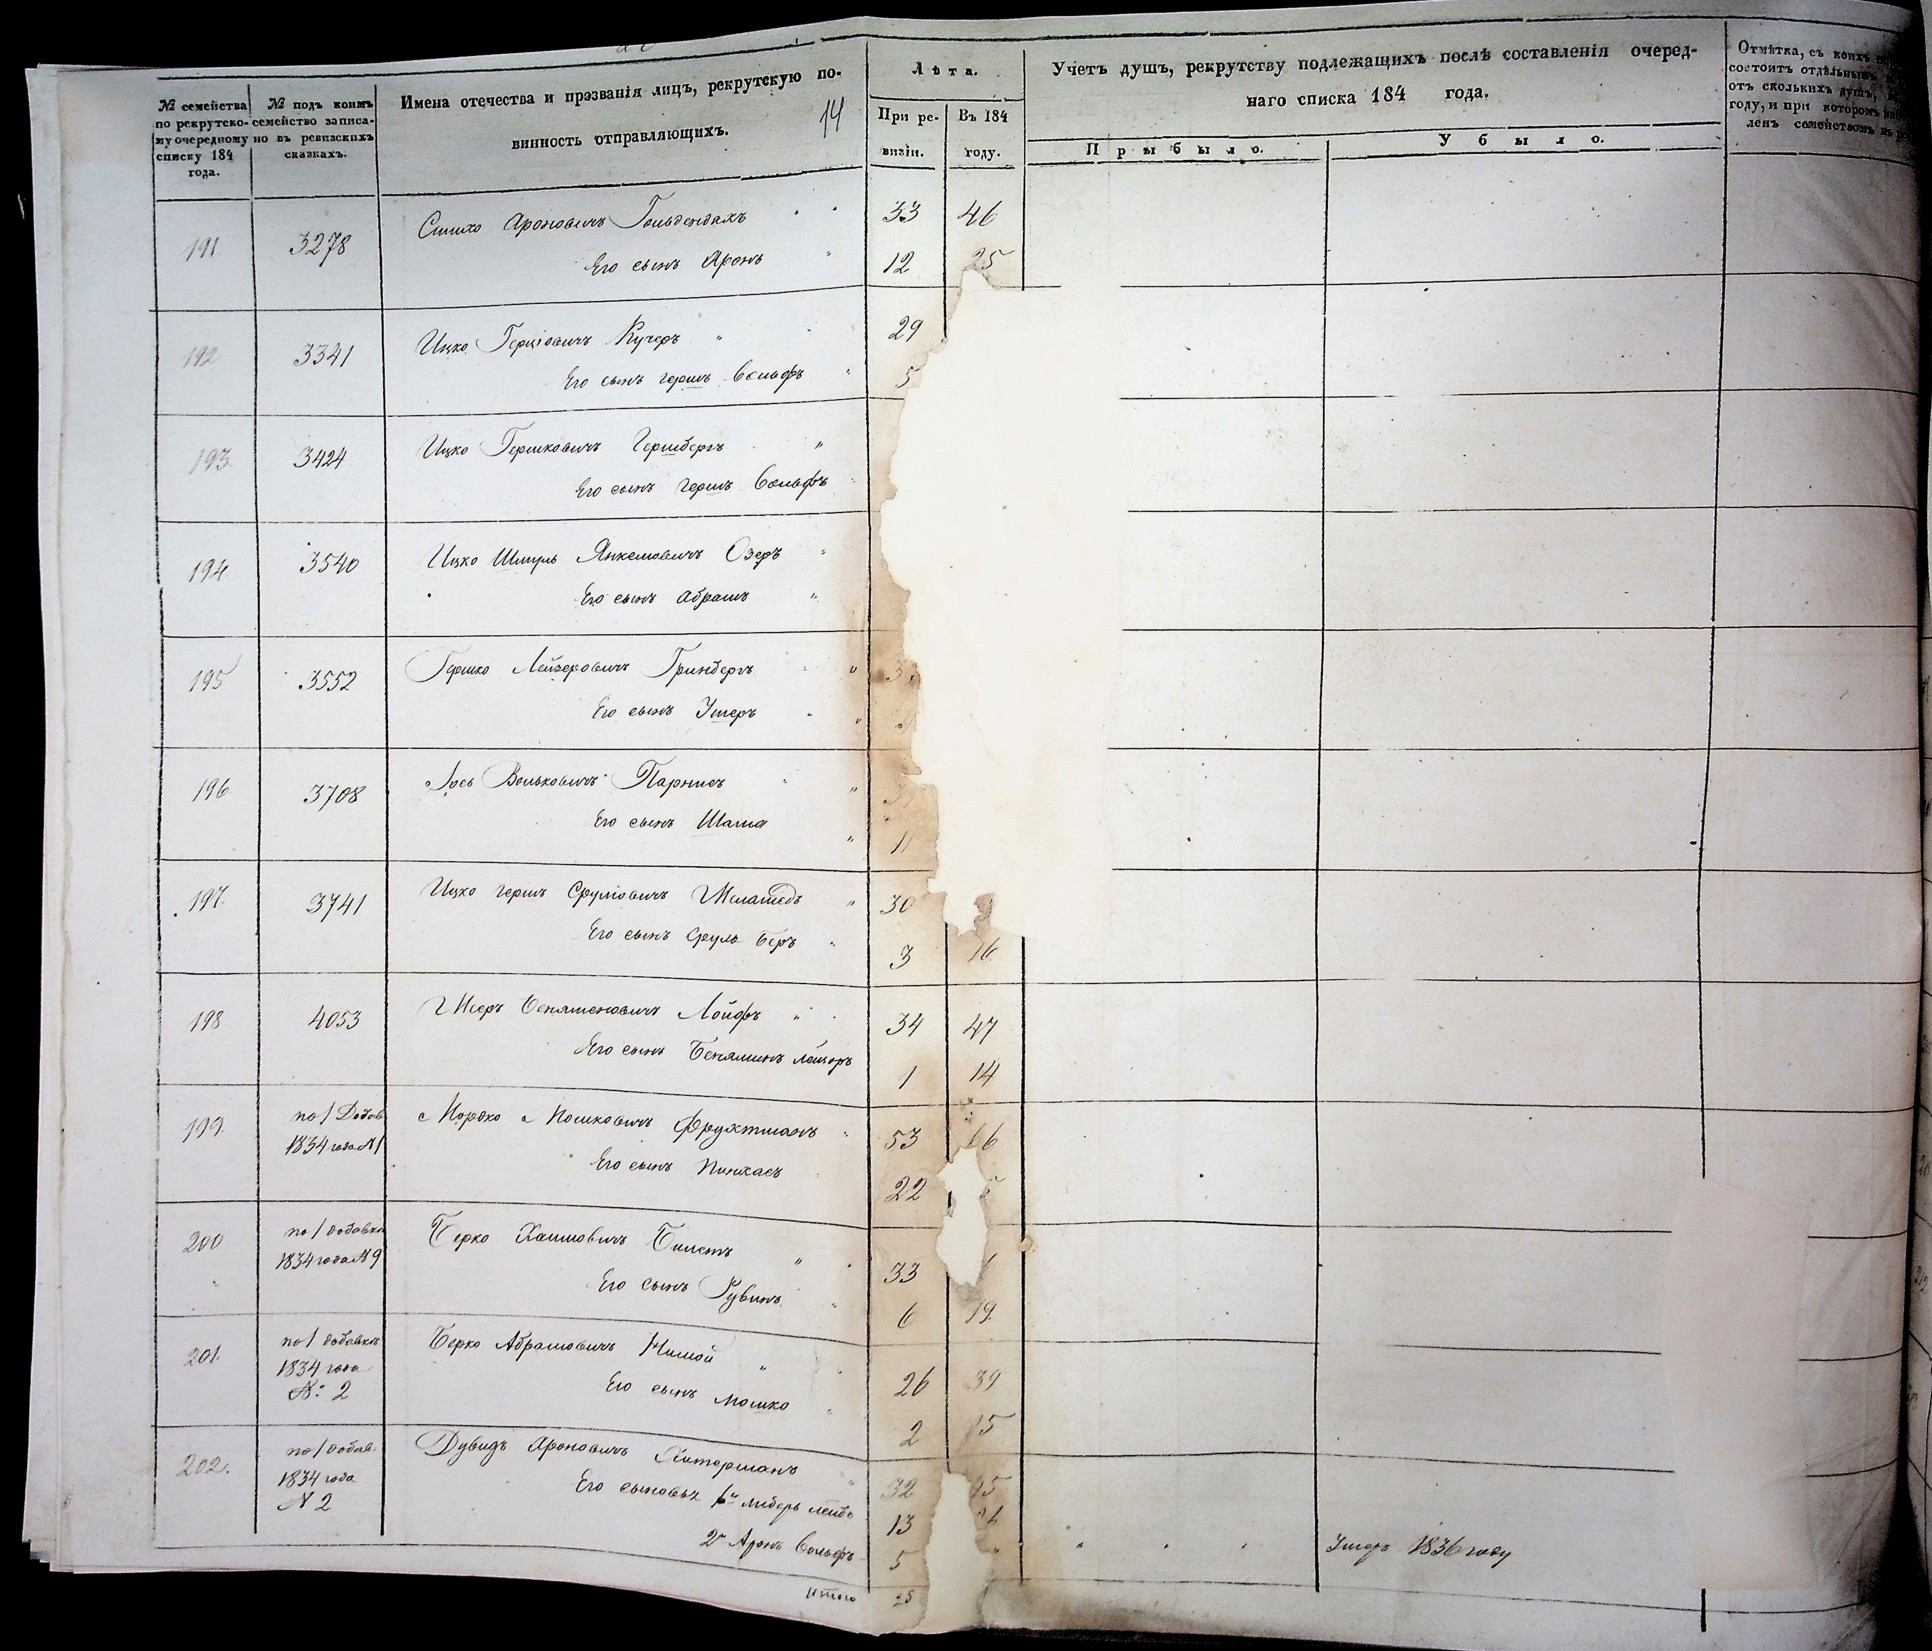 № семейства по рекрутскому очередному списку 184 года.
№ подъ коимъ семейство записано въ ревизскихъ сказкахъ.
Имена отечества и прозванія лицъ, рекрутскую повинность отправляющихъ.
14
Лѣта.
При ревизіи.
Въ 184 году.
Учетъ душъ, рекрутству подлежащихъ послѣ составленія очереднаго списка 184 года.
Прыбыло.
Убыло.
Отмѣтка, съ коихъ
состоитъ отдѣльнымъ
отъ сколькихъ душъ,
году, и при которомъ
ленъ семействомъ въ
191 3278 Симхо Ароновичъ Гольденцахъ 33 46
Его сынъ Аронъ 12 25
192 3341 Ицко Герціовичъ Кучеръ 29
Его сынъ Гершъ Вольфъ 5
193 3424 Ицко Гершковичъ Гершбергъ
Его сынъ Гершъ Вольфъ
194 3540 Ицко Шмуль Янкелювичъ Озеръ
Его сынъ Абрамъ
195 3552 Гершко Лейзеровичъ Гринбергъ
Его сынъ Ушеръ
196 3708 Іось Вольковичъ Парнисъ
Его сынъ Шама 11
197. 3741 Ицко Гершъ Сруліовичъ 30
Его сынъ Сруль Беръ 3 16
198 4053 Исеръ Бенямоновичъ Лойфъ 34 47
Его сынъ Беняминъ Лейзоръ 1 14
199. по 1 Добав 1834 года № 1 Мордко Мошковичъ Фрухтманъ 53 66
Его сынъ Пинхасъ 22
200 по 1 добавкѣ 1834 года № 9 Берко Хаимовичъ Билетъ 33
Его сынъ Рувинъ 6 19
201. по 1 добавкѣ 1834 года №: 2 Берко Абрамовичъ Нимой 26 39
Его сынъ Мошко 2 15
202. по 1 добав. 1834 года № 2 Дувидъ Ароновичъ 32 45
Его сыновья 1й Либеръ Лейба 13
2й Аронъ Вольфъ 5 Умеръ 1836 году
Итого 25